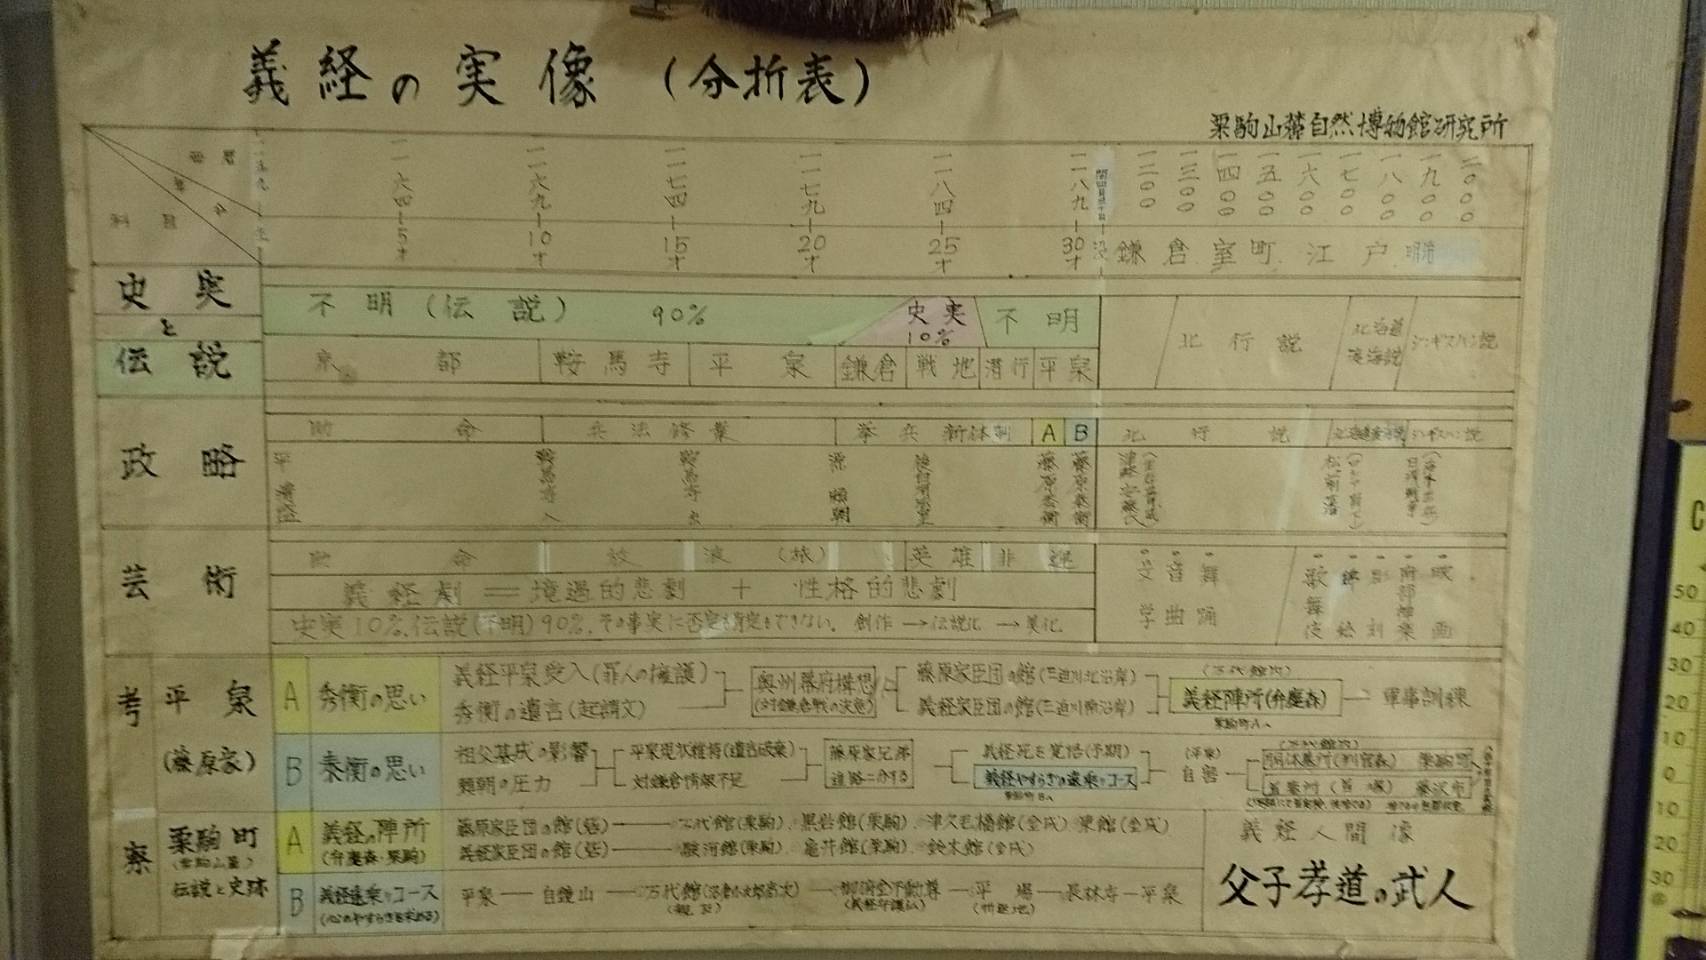 義経の実像（分折表）
栗駒山麓自然博物館研究所
西暦
年令
科目
一一五九
一一六四 5才
一一六九 10才
一一七四 15才
一一七九 20才
一一八四 25才
一一八九 30才
没
一二〇〇 一三〇〇 一四〇〇 一五〇〇 一六〇〇 一七〇〇 一八〇〇 一九〇〇 二〇〇〇
鎌倉 室町 江戸
史実と伝説
不明（伝説） 90%
史実 10%
不明
京都 鞍馬寺 平泉 鎌倉 戦地 潜行 平泉
北行説
北海道渡海説
ジンギスハン説
政略
助命 兵法修業 挙兵 新体制 A B 北行説 ジンギスハン説
平清盛
鞍馬寺入
鞍馬寺出
源頼朝
後白河法皇
藤原秀衡
藤原泰衡
松前藩
芸術
助命 放浪（旅） 英雄 非運
義経劇＝境過的悲劇＋性格的悲劇
史実10%、伝説（不明）90%、その事実に否定も肯定もできない。創作→伝説化→美化
文学
音曲
舞踊
歌舞伎
考察
平泉（藤原家）
A 秀衡の思い
義経平泉受入（罪人の擁護）
秀衡の遺言（起請文）
奥州幕府構想
（対鎌倉戦の決意）
藤原家臣団の館（三迫川北沿岸）
義経家臣団の館（三迫川南沿岸）
（万代館内）
義経陣所（弁慶森）
栗駒町Aへ
軍事訓練
B 泰衡の思い
祖父基成の影響
頼朝の圧力
平泉現状維持（遺言破棄）
対鎌倉情報不足
藤原家兄弟
進路二分する
義経死を覚悟（予期）
義経やすらぎの遠乗りコース
栗駒町Bへ
（平泉）
自害
（万代館内）
胴体墓所（判官森） 栗駒町
首墓所（首塚） 藤沢市
栗駒町
（栗駒山麓）
伝説と史跡
A 義経の陣所
（弁慶森・栗駒）
藤原家臣団の館（砦）→万代館（栗駒）、黒岩館（栗駒）、津久毛橋館（金成）
義経家臣団の館（砦）→駿河館（栗駒）、亀井館（栗駒）、鈴木館（金成）
B 義経遠乗りコース
（心のやすらぎを求める）
平泉―自鏡山―万代館―御滞金不動尊―平場―長林寺―平泉
義経人間像
父子孝道の武人
50
40
30
20
10
0
10
20
30